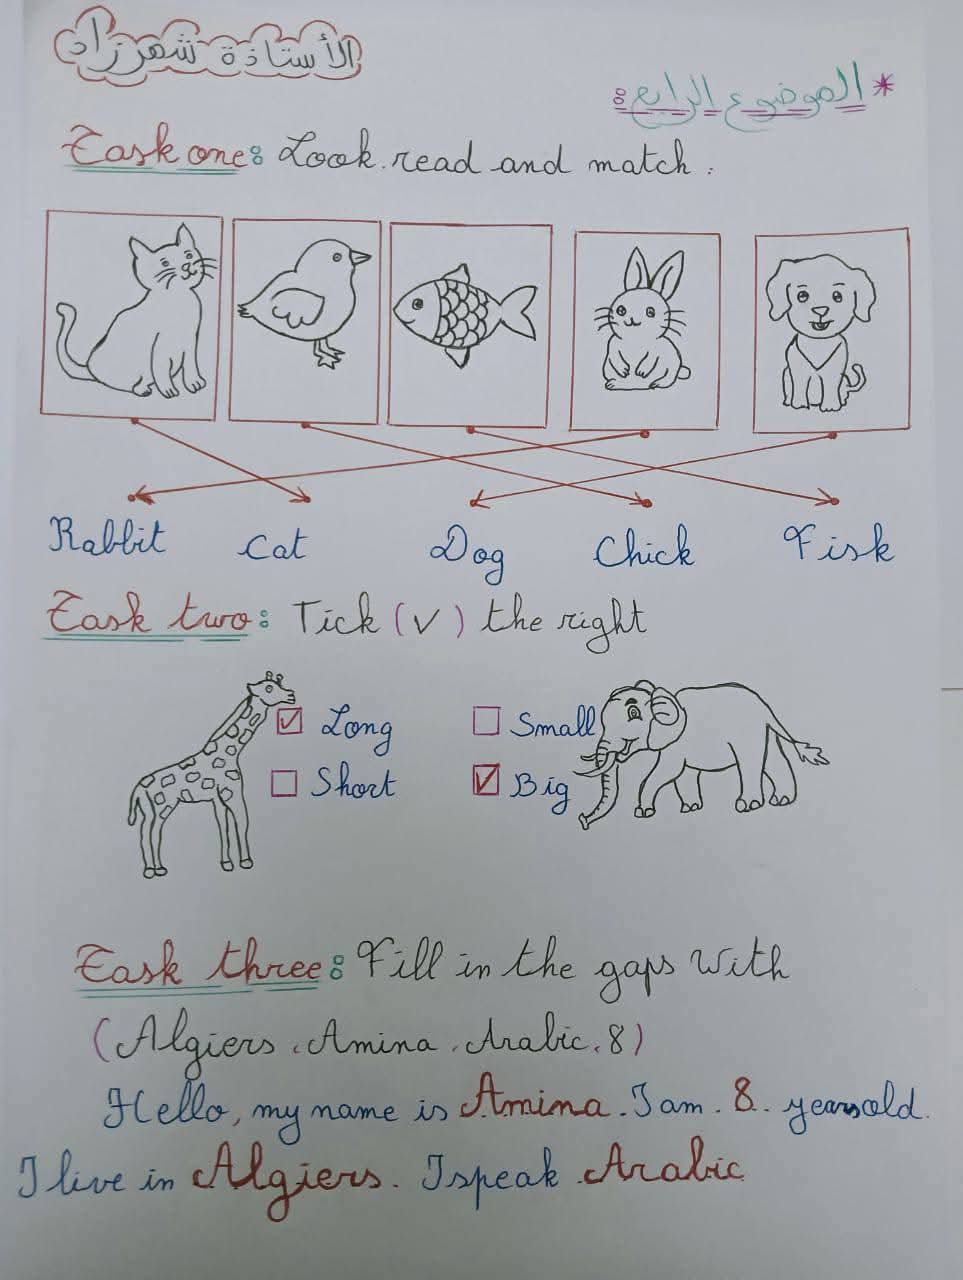 الأستاذة شهرزاد
* الموضوع الرابع:
Task one: Look. read and match.
Rabbit Cat Dog Chick Fisk
Task two: Tick (✓) the right
✓ Long Small
Short ✓ Big
Task three: Fill in the gaps with
(Algiers, Amina, Arabic, 8)
Hello, my name is Amina. I am. 8. years old.
I live in Algiers. I speak Arabic